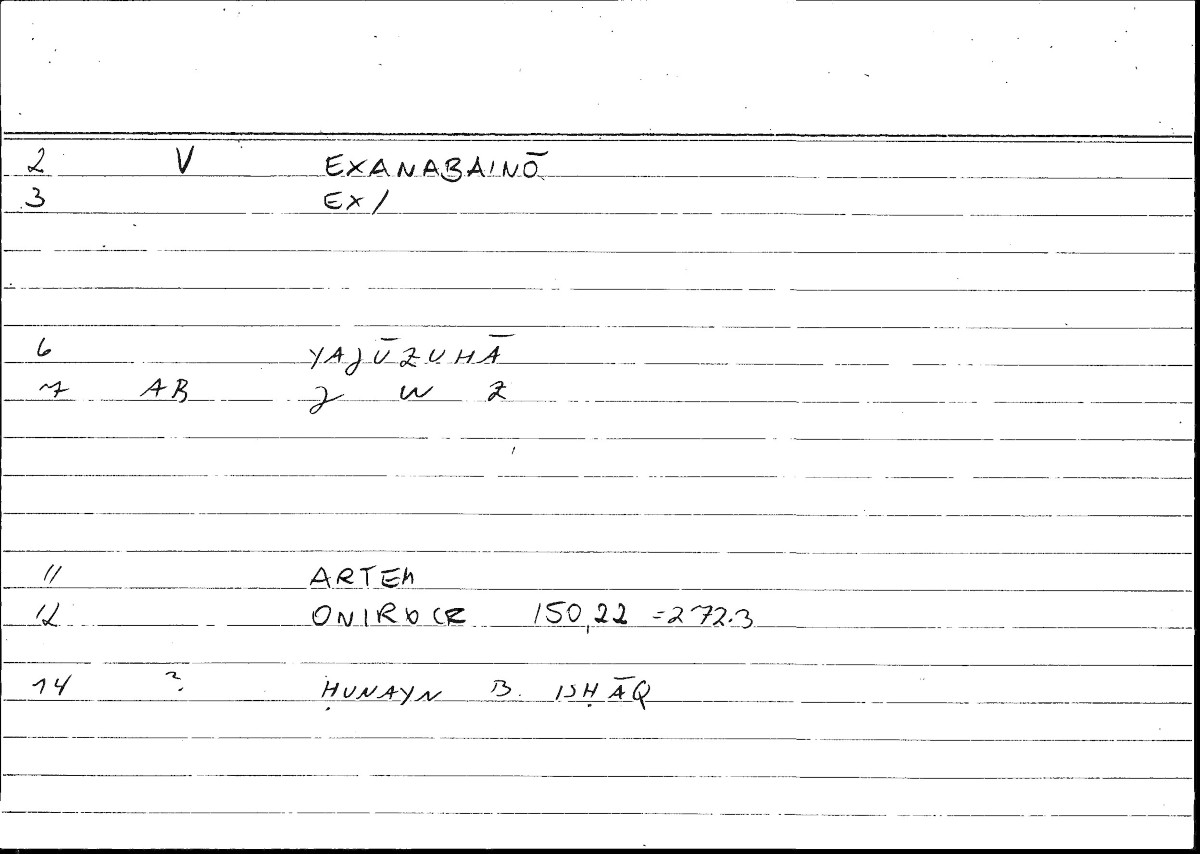 2 V EXANABAINŌ
3 EX/
6 YAJŪZUHĀ
7 AB J W Z
11 ARTEM
12 ONIROCR 150,22 =272.3
14 ? ḤUNAYN B. ISḤĀQ